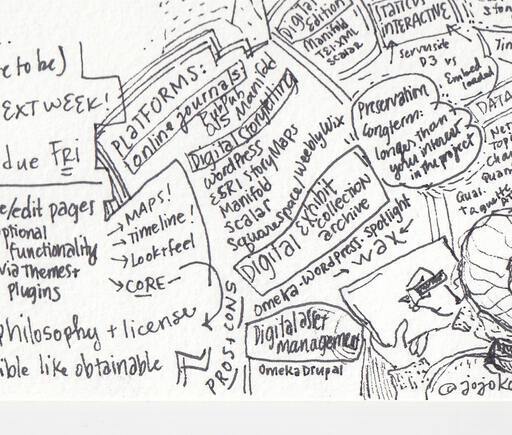 re to be)
EXT WEEK!
due FRI
e/edit pages
ptional
functionality
via themes+
plugins
philosophy + license
ible like obtainable
→ MAPS!
→ Timeline!
→ Look+feel
→ CORE
PROS + CONS
PLATFORMS:
online journals
PubPub
OJS Manifold
Digital Storytelling
WordPress
ESRI StoryMaps
Manifold
Scalar
Squarespace/Weebly/Wix
Digital Exhibit
Collection
archive
Omeka-WordPress-spotlight
→ wax ←
Digital asset
management
Omeka Drupal
Digital
Edition
Manifold
TEI:XML
Scalar
STATIC VS
INTERACTIVE
serverside
D3 vs
Embed
loaded
Preservation
Longterm:
longer than
your interest
in the project
DATA
NET
Top
Char
Quan
Qual.
Taguette
@jojoka